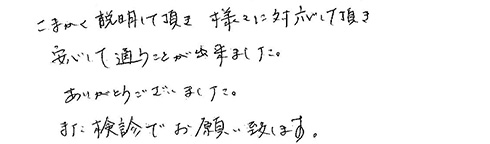 こまかく説明して頂き 様々に対応して頂き
安心して通うことが出来ました。
ありがとうございました。
また検診でお願い致します。